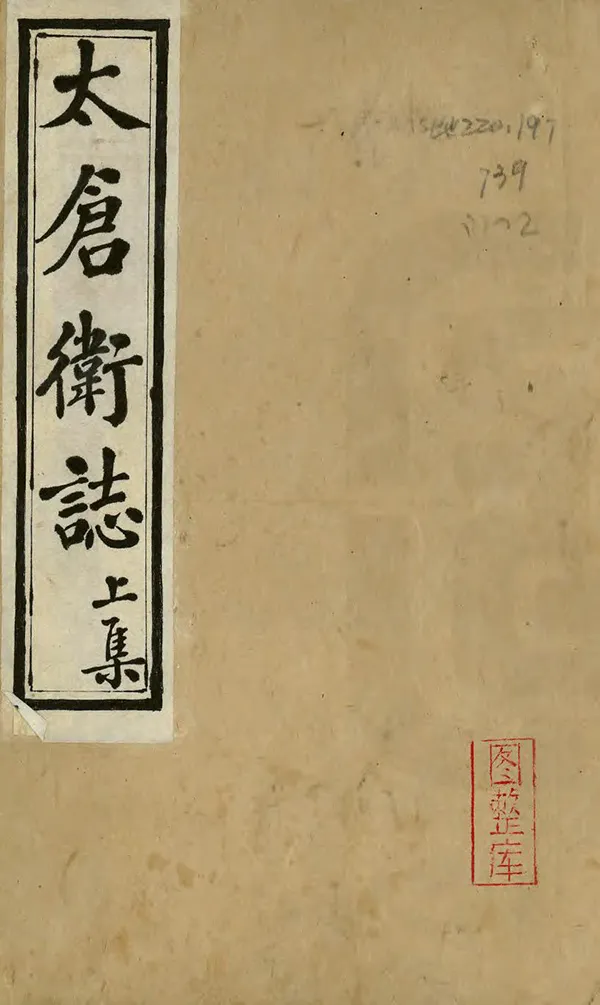 太倉衛誌
上集
220.197
739
图整库